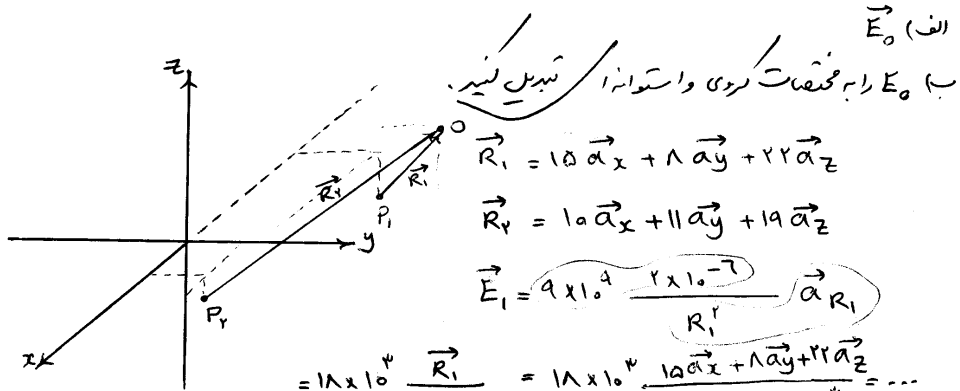 الف) $\vec{E}_0$
ب) E₀ را به مختصات کروی و استوانه‌ا تبدیل کنید.
z
O
$\vec{R_۱}$ = ۱۵ $\vec{a}_x$ + ۸ $\vec{a}_y$ + ۲۲ $\vec{a}_z$
$\vec{R_۲}$ $\vec{R_۱}$
P₁
$\vec{R_۲}$ = ۱۰ $\vec{a}_x$ + ۱۱ $\vec{a}_y$ + ۱۹ $\vec{a}_z$
y
$\vec{E_۱}$ = ۹×۱۰^۹ (۲×۱۰^{-۶})/(R_۱^۲) $\vec{a}_{R_۱}$
P_۲
x
= ۱۸×۱۰^۳ $\vec{R_۱}$ = ۱۸×۱۰^۳ ۱۵ $\vec{a}_x$ + ۸ $\vec{a}_y$ + ۲۲ $\vec{a}_z$ = ...